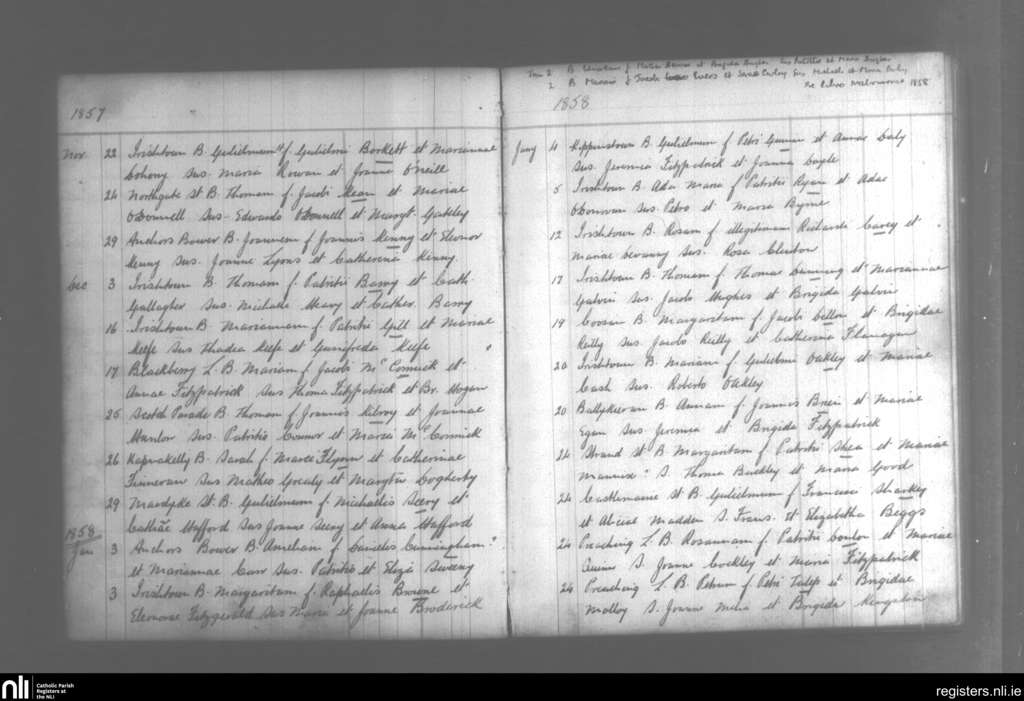 1857
Nov. 22 Irishtown B. Gulielmum f. Gulielmi Barkett et Mariannae
Cohony Sus. Maria Rowan et Joanne O'Neill
24 Northgate St B. Thomam f. Jacobi Kean et Mariae
O'Donnell Sus. Edwardo O'Donnell et Margt. Gateley
29 Anchors Bower B. Joannem f. Joannis Kenny et Eleonor
Kenny Sus. Joanne Lyons et Catherina Kenny
Dec 3 Irishtown B. Thomam f. Patritii Barry et Cath.
Gallagher Sus. Michaele Meary et Cather. Barry
16 Irishtown B. Mariannam f. Patritii Gill et Mariae
Keefe Sus Thadea Keefe et Gunifreda Keefe
17 Blackberry L. B. Mariam f. Jacobi McCormick et
Annae Fitzpatrick Sus Thoma Fitzpatrick et Br. Hogan
25 Scotch Parade B. Thomam f. Joannis Kilroy et Joannae
Hanlon Sus. Patritio Connor et Maria McCormick
26 Kapnakelly B. Sarah f. Marci Flynn et Catherinae
Finneran Sus Matheo Grealy et Margta Dogherty
29 Mardyke St B. Gulielmum f. Michaelis Seery et
Cathae Stafford Sus Joanne Seery et Anna Stafford
1858
Jan 3 Anchors Bower B. Anneham f. Cunningham
et Mariannae Carr Sus. Patritio et Eliza Sweeny
3 Irishtown B. Margaritam f. Raphaelis Browne et
Eleonorae Fitzgerald Sus Maria et Joanne Broderick
2 B et Brigida Sus Patritio et Maria
2 B et Sus Michaele et Maria
Melbourne 1858
1858
Jany 4 Kippinstown B. Gulielmum f. Petri Gunin et Annae Daly
Sus. Jeremia Fitzpatrick et Joanna Coyle
5 Irishtown B. Ada Maria f. Patritii Ryan et Adae
O'Donovan Sus. Petro et Maria Byrne
12 Irishtown B. Rosam f. illegitimam Richardi Carey et
Mariae Sus. Rosa Clinton
17 Irishtown B. Thomam f. Thomae Cunniny et Mariannae
Galvin Sus. Jacobo Hughes et Brigida Galvin
19 Coosan B. Margaritam f. Jacobi et Brigidae
Reilly Sus. Jacobo Reilly et Catherina Flanagan
20 Irishtown B. Mariam f. Gulielmi Oakley et Mariae
Cash Sus. Roberto Oakley
20 Ballykeeran B. Annam f. Joannis Breen et Mariae
Egan Sus Jeremia et Brigida Fitzpatrick
24 Strand St B. Margaritam f. Patritii Shea et Mariae
Mannix S. Thoma Buckley et Maria Good
24 Castlemaine St B. Gulielmum f. Francisci Sharkey
et Aliciae Madden S. Frans. et Elizabetha Beggs
24 Preaching L. B. Rosannam f. Patritii Conlon et Mariae
Quinn S. Joanne Cockley et Maria Fitzpatrick
24 Preaching L. B. Petrum f. Petri et Brigidae
Molloy S. Joanne et Brigida
nli
Catholic Parish
Registers at
the NLI
registers.nli.ie